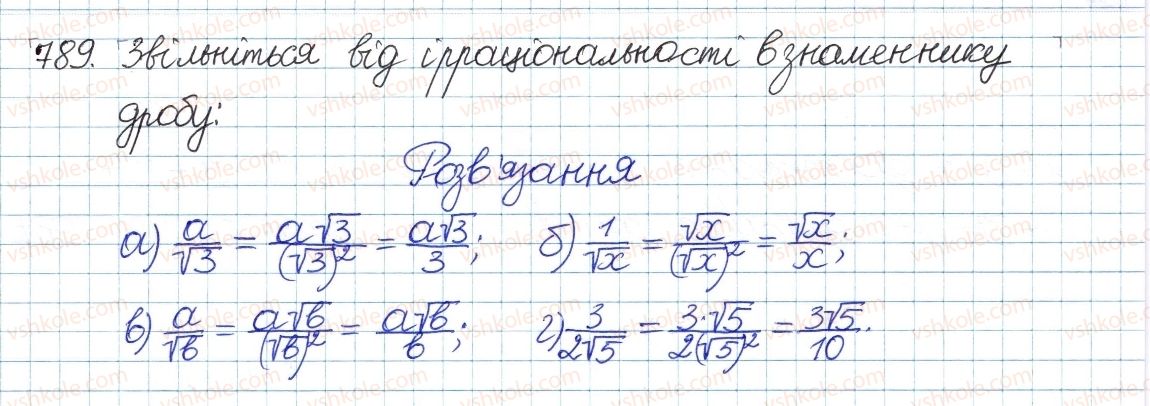 789. Звільніться від ірраціональності в знаменнику
дробу:
Розв'язання
а) a/√3 = a√3/(√3)² = a√3/3; б) 1/√x = √x/(√x)² = √x/x;
в) a/√b = a√b/(√b)² = a√b/b; г) 3/2√5 = 3·√5/2(√5)² = 3√5/10.
vshkole.com